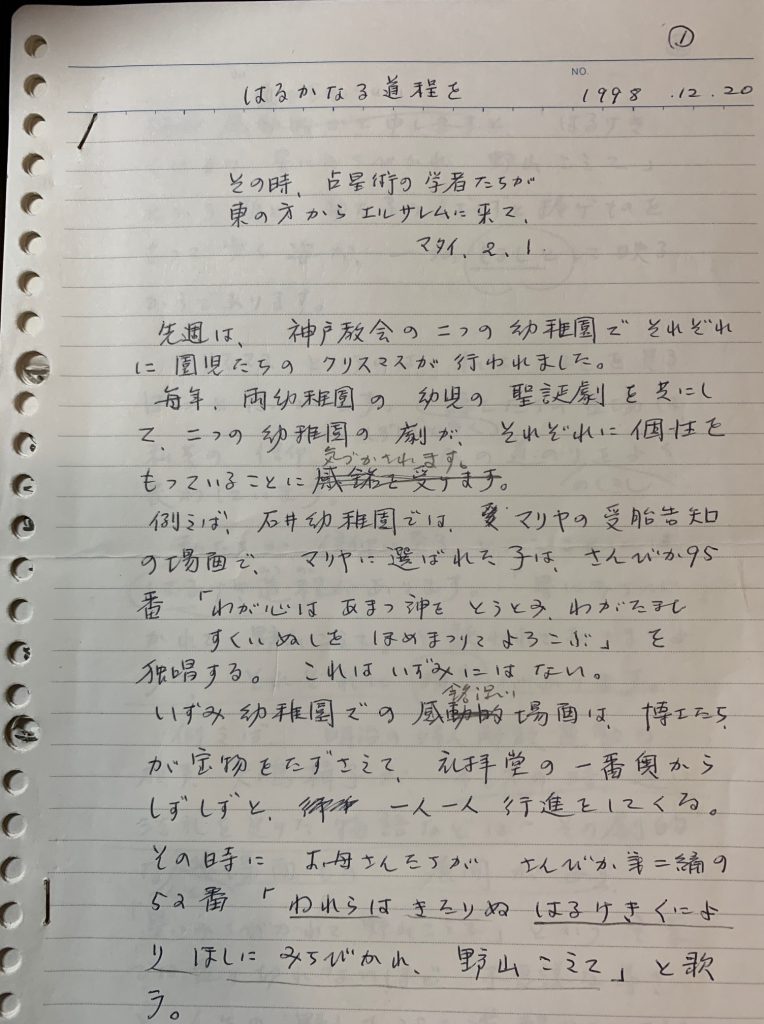 ①
はるかなる道程を
NO.
1998.12.20
その時、占星術の学者たちが
東の方からエルサレムに来て、
マタイ、2、1.
先週は、神戸教会の二つの幼稚園でそれぞれ
に園児たちのクリスマスが行われました。
毎年、両幼稚園の幼児の聖誕劇を共にし
て、二つの幼稚園の劇が、それぞれに個性を
気づかされます。
もっていることに感銘を受けます。
例えば、石井幼稚園では、マリヤの受胎告知
の場面で、マリヤに選ばれた子は、さんびか95
番「わが心は あまつ神を とうとみ、わがたまし
すくいぬしを ほめまつりて よろこぶ」を
独唱する。これはいずみにはない。
銘深い
いずみ幼稚園での感動的場面は、博士たち
が宝物をたずさえて、礼拝堂の一番奥から
しずしずと、一人一人行進をしてくる。
その時に お母さんたちが さんびか第二編の
52番「われらは きたりぬ はるけきくによ
り ほしに みちびかれ、野山こえて」と歌
う。